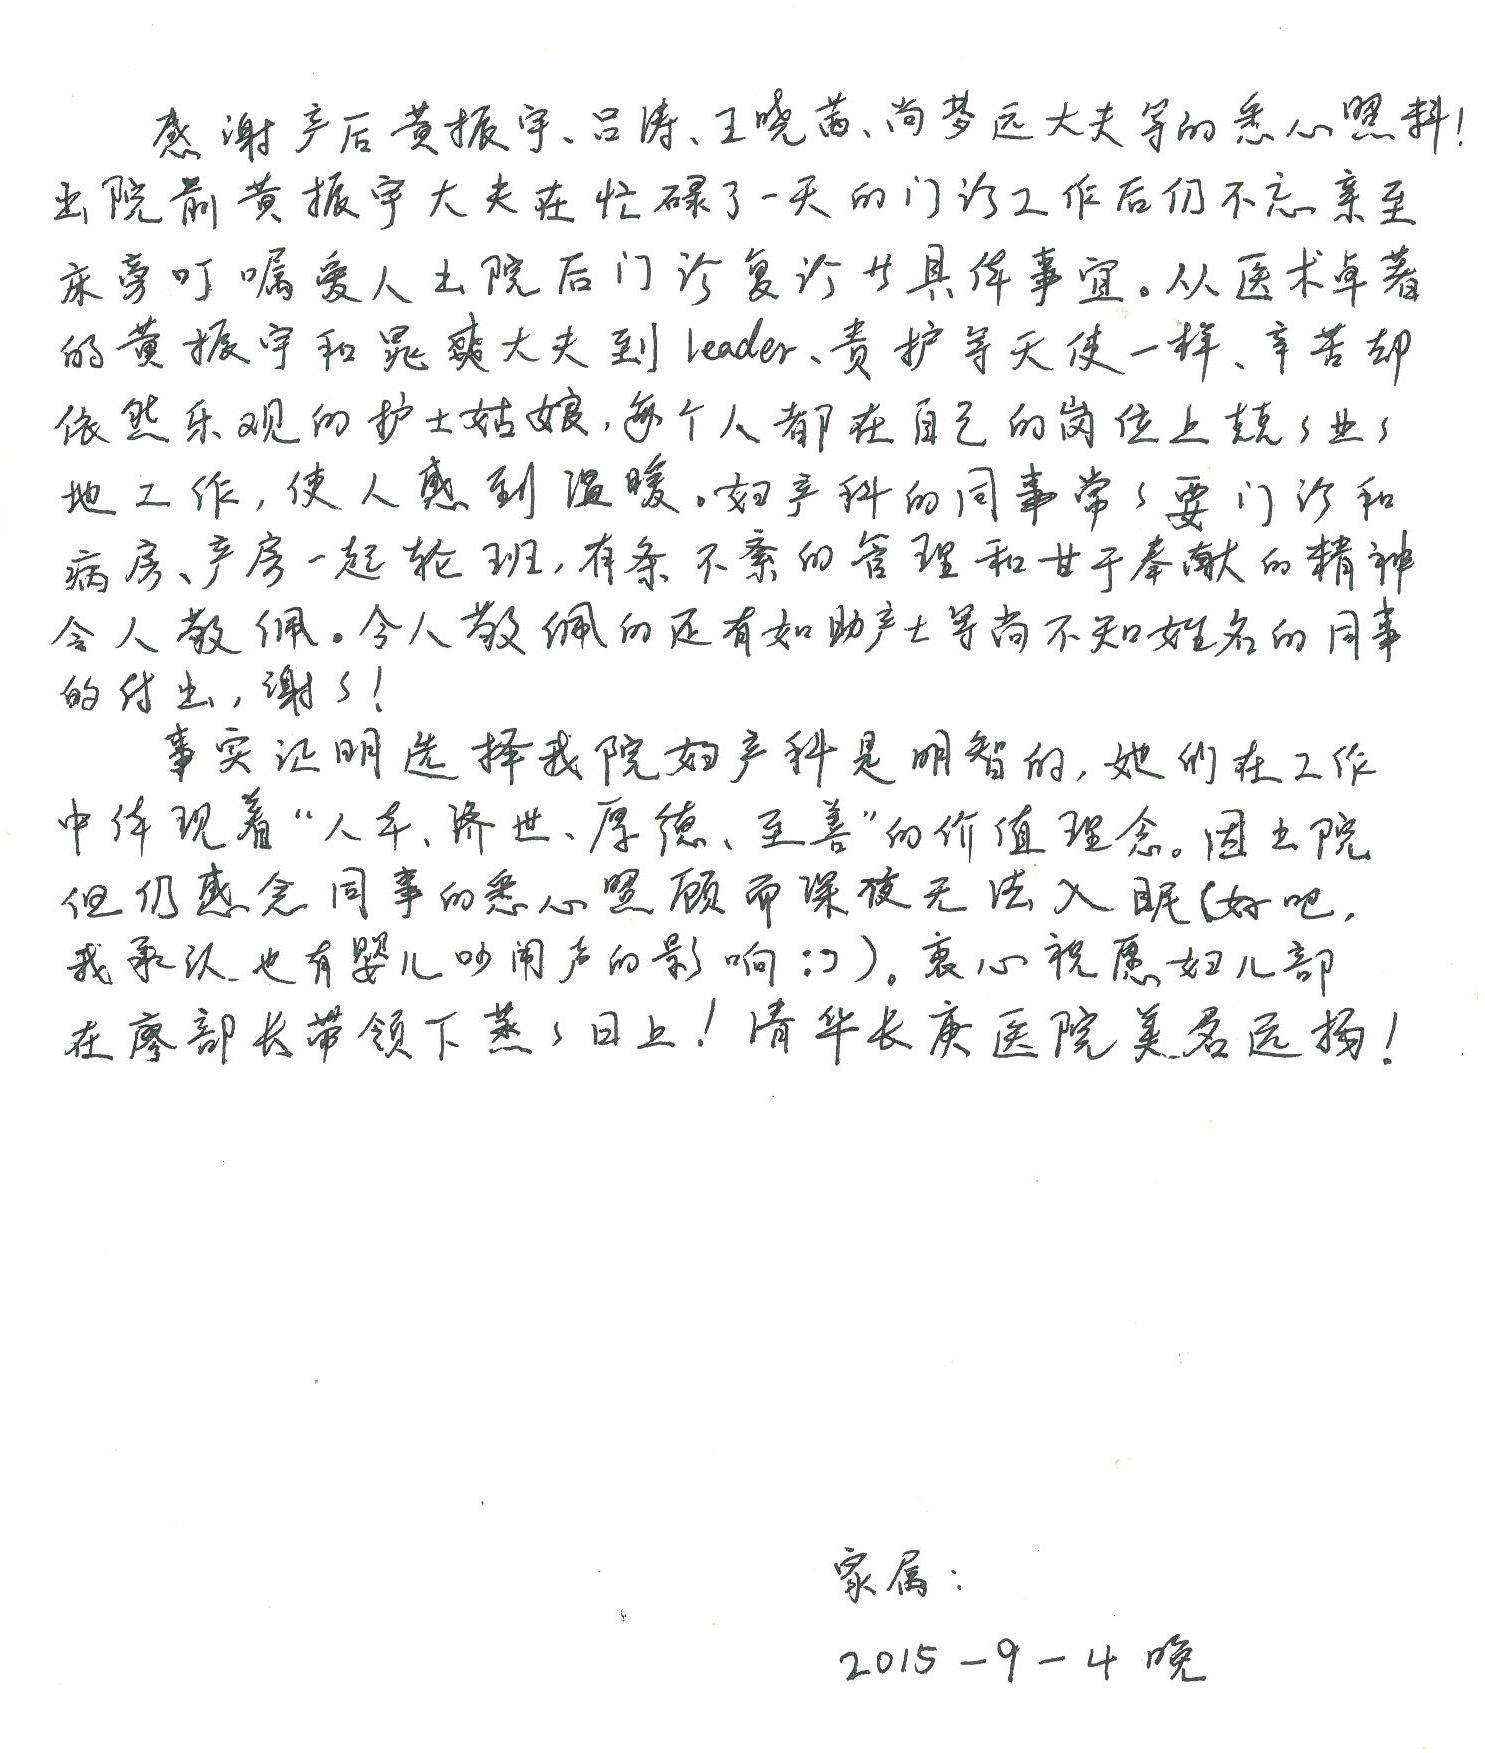 感谢产后黄振宇、吕涛、王晓茜、尚梦远大夫等的悉心照料！
出院前黄振宇大夫在忙碌了一天的门诊工作后仍不忘亲至
床旁叮嘱爱人出院后门诊复诊廿具体事宜。从医术卓著
的黄振宇和晁爽大夫到leader、责护等天使一样、辛苦却
依然乐观的护士姑娘，每个人都在自己的岗位上兢々业々
地工作，使人感到温暖。妇产科的同事常々要门诊和
病房、产房一起轮班，有条不紊的管理和甘于奉献的精神
令人敬佩。令人敬佩的还有如助产士等尚不知姓名的同事
的付出，谢々！
事实证明选择我院妇产科是明智的，她们在工作
中体现着“人本、济世、厚德、至善”的价值理念。因出院
但仍感念同事的悉心照顾而深夜无法入眠（好吧，
我承认也有婴儿吵闹声的影响:コ）。衷心祝愿妇儿部
在廖部长带领下蒸々日上！清华长庚医院美名远扬！
家属：
2015－9－4 晚